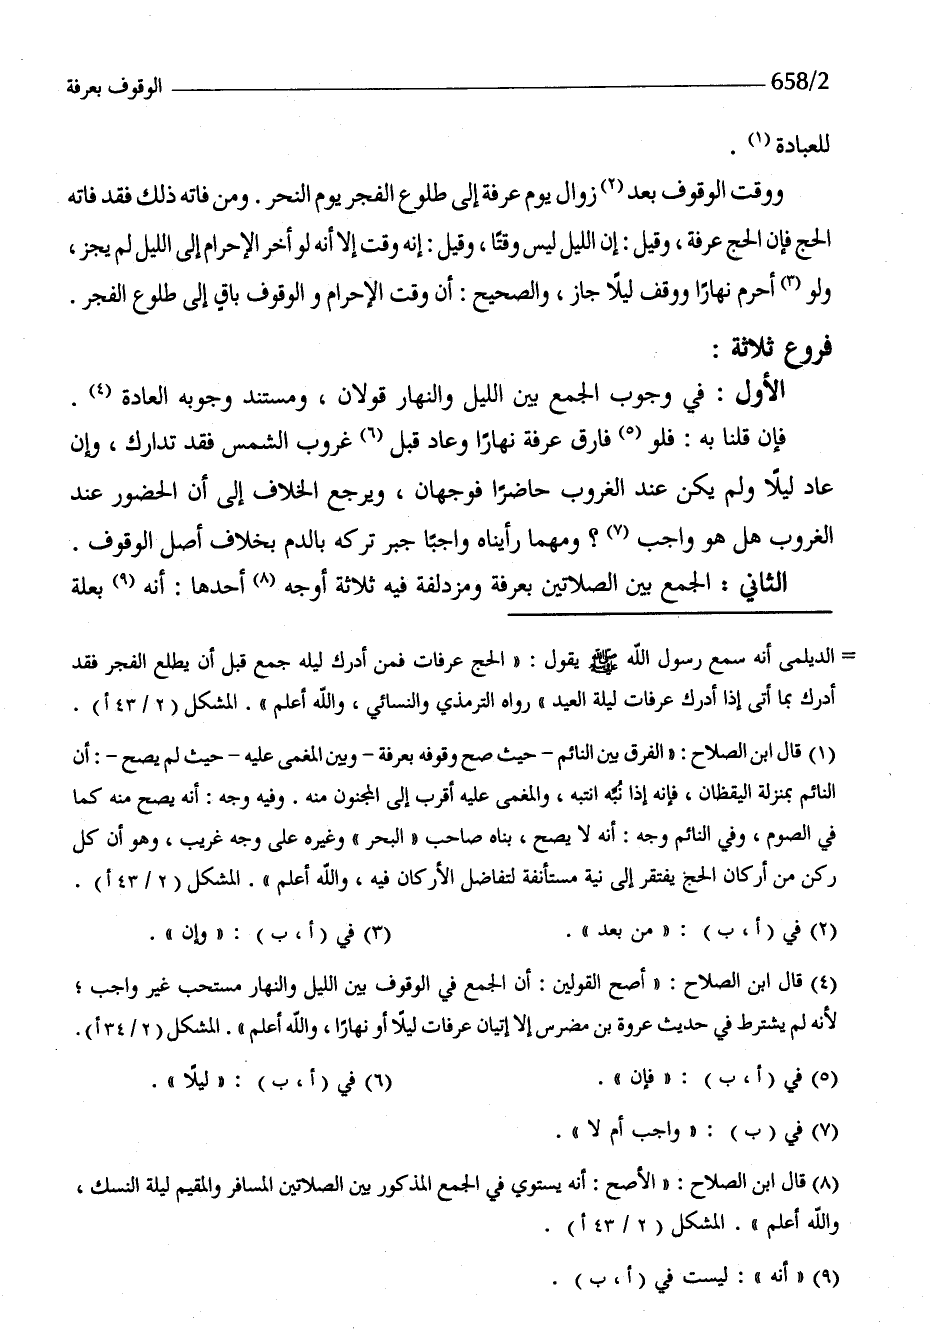 658/2 الوقوف بعرفة
للعبادة (١) .
ووقت الوقوف بعد (٢) زوال يوم عرفة إلى طلوع الفجر يوم النحر . ومن فاته ذلك فقد فاته
الحج فإن الحج عرفة ، وقيل : إن الليل ليس وقتًا ، وقيل : إنه وقت إلا أنه لو أخر الإحرام إلى الليل لم يجز ،
ولو (٣) أحرم نهارًا ووقف ليلًا جاز ، والصحيح : أن وقت الإحرام و الوقوف باقٍ إلى طلوع الفجر .
فروع ثلاثة :
الأول : في وجوب الجمع بين الليل والنهار قولان ، ومستند وجوبه العادة (٤) .
فإن قلنا به : فلو (٥) فارق عرفة نهارًا وعاد قبل (٦) غروب الشمس فقد تدارك ، وإن
عاد ليلًا ولم يكن عند الغروب حاضرًا فوجهان ، ويرجع الخلاف إلى أن الحضور عند
الغروب هل هو واجب (٧) ؟ ومهما رأيناه واجبًا جبر تركه بالدم بخلاف أصل الوقوف .
الثاني : الجمع بين الصلاتين بعرفة ومزدلفة فيه ثلاثة أوجه (٨) أحدها : أنه (٩) بعلة
= الديلمى أنه سمع رسول الله ﷺ يقول : « الحج عرفات فمن أدرك ليله جمع قبل أن يطلع الفجر فقد
أدرك بما أتى إذا أدرك عرفات ليلة العيد » رواه الترمذي والنسائي ، والله أعلم » . المشكل ( ٢ / ٤٣ أ ) .
(١) قال ابن الصلاح : « الفرق بين النائم – حيث صح وقوفه بعرفة – وبين المغمى عليه – حيث لم يصح – : أن
النائم بمنزلة اليقظان ، فإنه إذا نُبِّه انتبه ، والمغمى عليه أقرب إلى المجنون منه . وفيه وجه : أنه يصح منه كما
في الصوم ، وفي النائم وجه : أنه لا يصح ، بناه صاحب « البحر » وغيره على وجه غريب ، وهو أن كل
ركن من أركان الحج يفتقر إلى نية مستأنفة لتفاضل الأركان فيه ، والله أعلم » . المشكل ( ٢ / ٤٣ أ ) .
(٢) في ( أ ، ب ) : « من بعد » . (٣) في ( أ ، ب ) : « وإن » .
(٤) قال ابن الصلاح : « أصح القولين : أن الجمع في الوقوف بين الليل والنهار مستحب غير واجب ؛
لأنه لم يشترط في حديث عروة بن مضرس إلا إتيان عرفات ليلًا أو نهارًا ، والله أعلم » . المشكل ( ٢ / ٣٤ أ ) .
(٥) في ( أ ، ب ) : « فإن » . (٦) في ( أ ، ب ) : « ليلًا » .
(٧) في ( ب ) : « واجب أم لا » .
(٨) قال ابن الصلاح : « الأصح : أنه يستوي في الجمع المذكور بين الصلاتين المسافر والمقيم ليلة النسك ،
والله أعلم » . المشكل ( ٢ / ٤٣ أ ) .
(٩) « أنه » : ليست في ( أ ، ب ) .